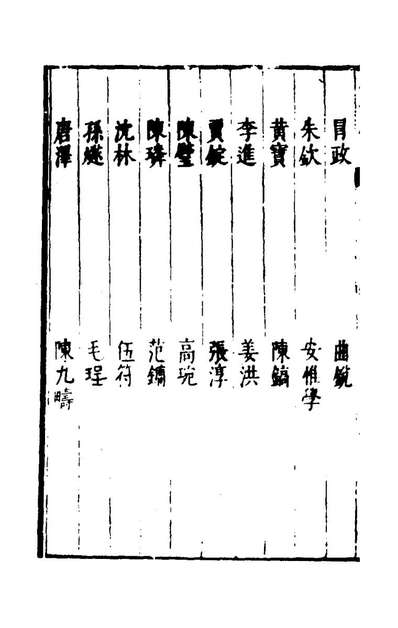 冒政 曲銳
朱欽 安惟學
黄寶 陳鎬
李進 姜洪
賈錠 張淳
陳璧 高琬
陳璘 范鏞
沈林 伍符
孫燧 毛珵
唐澤 陳九疇